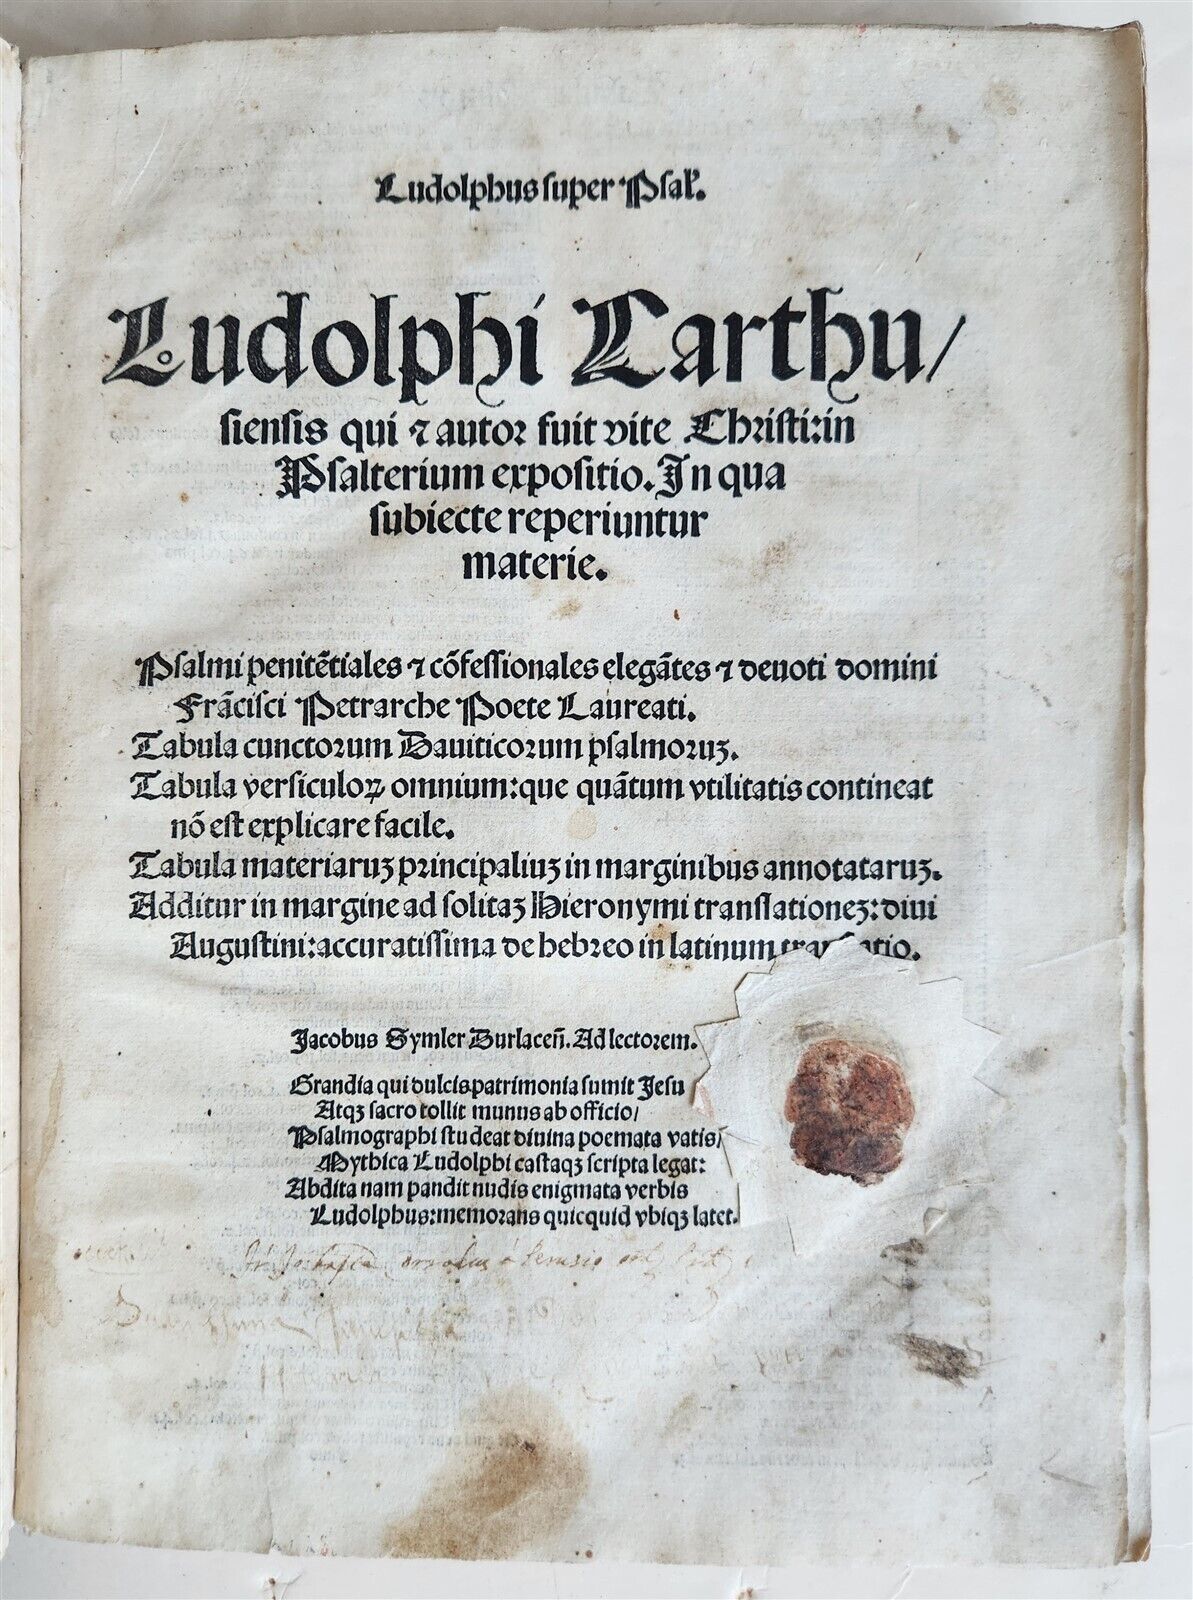 Ludolphus super Psalꝰ.
Ludolphi Carthu/
siensis qui ⁊ autor fuit vite Christi:in
Psalterium expositio. In qua
subiecte reperiuntur
materie.
Psalmi penitẽtiales ⁊ cõfessionales elegãtes ⁊ deuoti domini
Frãcisci Petrarche Poete Laureati.
Tabula cunctorum Dauiticorum psalmoruꝫ.
Tabula versiculoꝝ omnium:que quãtum vtilitatis contineat
nõ est explicare facile.
Tabula materiaruꝫ principaliuꝫ in marginibus annotataruꝫ.
Additur in margine ad solitaꝫ Hieronymi translationeꝫ:diui
Augustini:accuratissima de hebreo in latinum translatio.
Jacobus Symler Durlaceñ. Ad lectorem.
Grandia qui dulcis patrimonia sumit Jesu
Atqꝫ sacro tollit munus ab officio/
Psalmographi studeat diuina poemata vatis/
Mythica Ludolphi castaqꝫ scripta legat:
Abdita nam pandit nudis enigmata verbis
Ludolphus:memorans quicquid vbiqꝫ latet.